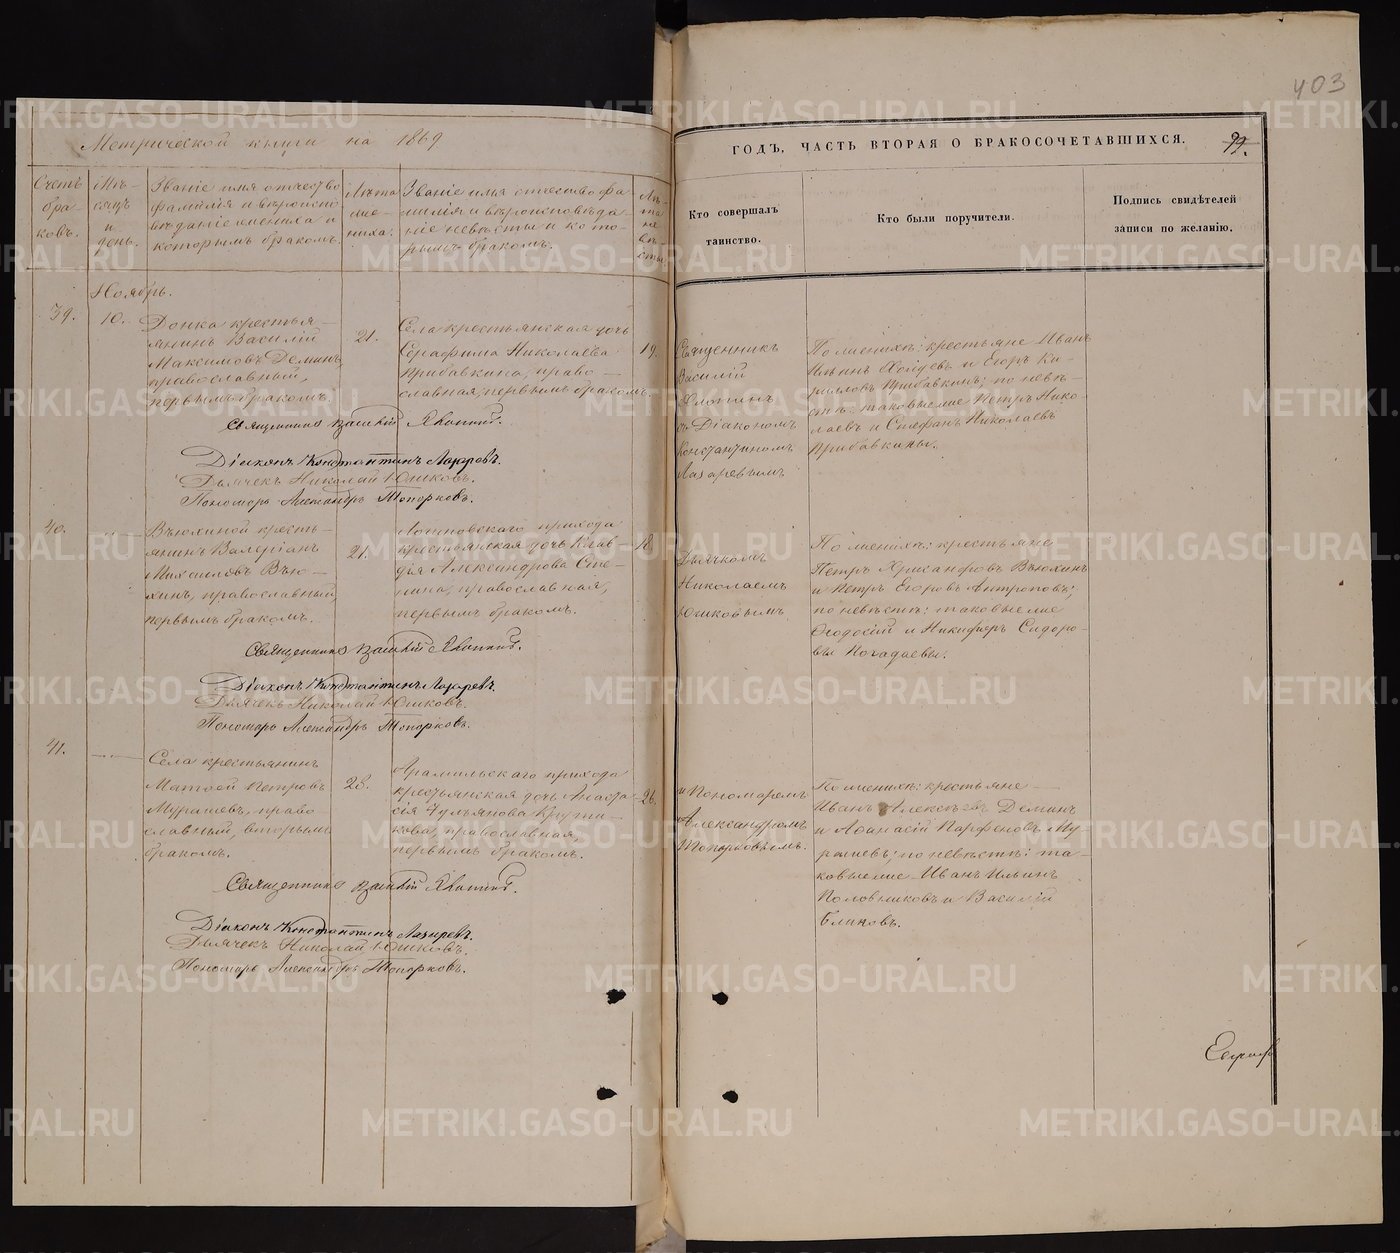 403
Метрической книги на 1869
ГОДЪ, ЧАСТЬ ВТОРАЯ О БРАКОСОЧЕТАВШИХСЯ.
99.
Счетъ
бра-
ковъ.
Мѣ-
сяцъ
и
день.
Званіе имя отчество
фамилія и вѣроиспо
вѣданіе жениха и
которымъ бракомъ.
Лѣта
же-
ниха.
Званіе имя отчество фа-
милія и вѣроисповѣда-
ніе невѣсты и кото-
рымъ бракомъ.
Лѣ-
та
не
вѣ-
сты
Кто совершалъ
таинство.
Кто были поручители.
Подпись свидѣтелей
записи по желанію.
Ноябрь.
39.
10.
крестья-
янинъ Василій
Максимовъ Деминъ,
православный,
первымъ бракомъ.
21.
Села крестьянская дочь
Серафима Николаева
Прибавкина, право-
славная, первымъ бракомъ.
19.
Священникъ
Василій
съ Діакономъ
Константиномъ
Лазаревымъ
По женихѣ: крестьяне Иванъ
Ильинъ и Егоръ Ки-
рилловъ Прибавкинъ; по невѣ-
стѣ: таковые же Петръ Нико-
лаевъ и Стефанъ Николаевъ
Прибавкины.
Священникъ Василій
Діаконъ Константинъ Лазаревъ.
Дьячекъ Николай Юшковъ.
Пономарь Александръ Топорковъ.
40.
Вьюхиной кресть-
янинъ Валеріанъ
Михаиловъ Вью-
хинъ, православный,
первымъ бракомъ.
21.
Логиновскаго прихода
крестьянская дочь Клав-
дія Александрова Спи-
рина, православная,
первымъ бракомъ.
18
Дьячкомъ
Николаемъ
Юшковымъ
По женихѣ: крестьяне
Петръ Хрисанфовъ Вьюхинъ
и Петръ Егоровъ Антроповъ;
по невѣстѣ: таковые же
Ѳеодосій и Никифоръ Сидоро-
вы Ногадаевы.
Священникъ Василій
Діаконъ Константинъ Лазаревъ.
Дьячекъ Николай Юшковъ.
Пономарь Александръ Топорковъ.
41.
Села крестьянинъ
Матвей Петровъ
Мурашевъ, право
славный, вторымъ
бракомъ.
28.
Арамильскаго прихода
крестьянская дочь Анаста-
сія Крути-
кова, православная,
первымъ бракомъ.
26.
и Пономаремъ
Александромъ
Топорковымъ.
По женихѣ: крестьяне
Иванъ Алексѣевъ Деминъ
и Аѳанасій Парфеновъ Му-
рашевъ; по невѣстѣ: та-
ковые же Иванъ Ильинъ
Половниковъ и Василій
Блиновъ.
Священникъ Василій
Діаконъ Константинъ Лазаревъ.
Дьячекъ Николай Юшковъ.
Пономарь Александръ Топорковъ.
METRIKI.GASO-URAL.RU